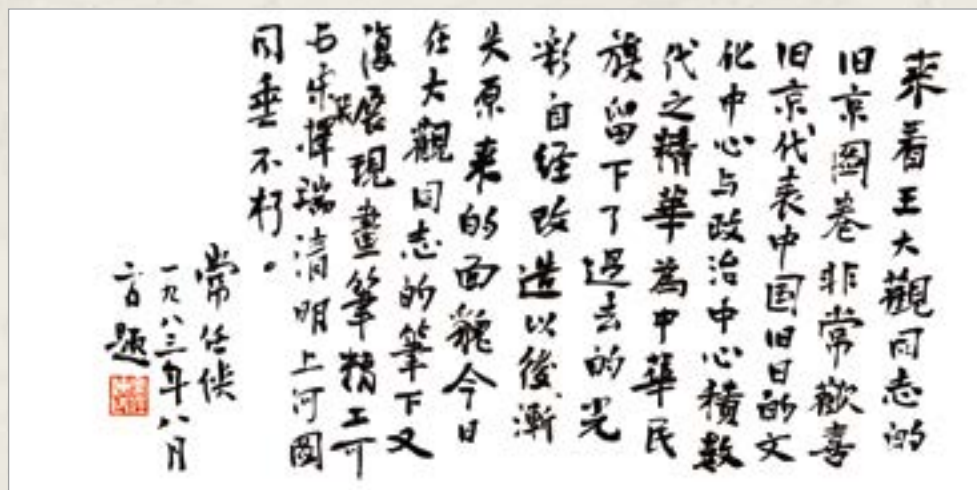 来看王大觀同志的
旧京圖卷非常歡喜
旧京代表中国旧日的文
化中心与政治中心積数
代之精華為中華民
族留下了過去的光
彩自经改造以後漸
失原来的面貌今日
在大觀同志的筆下又
復展現畫筆精工可
与宋擇瑞清明上河圖
同垂不朽。
常任侠
一九八三年八月
题